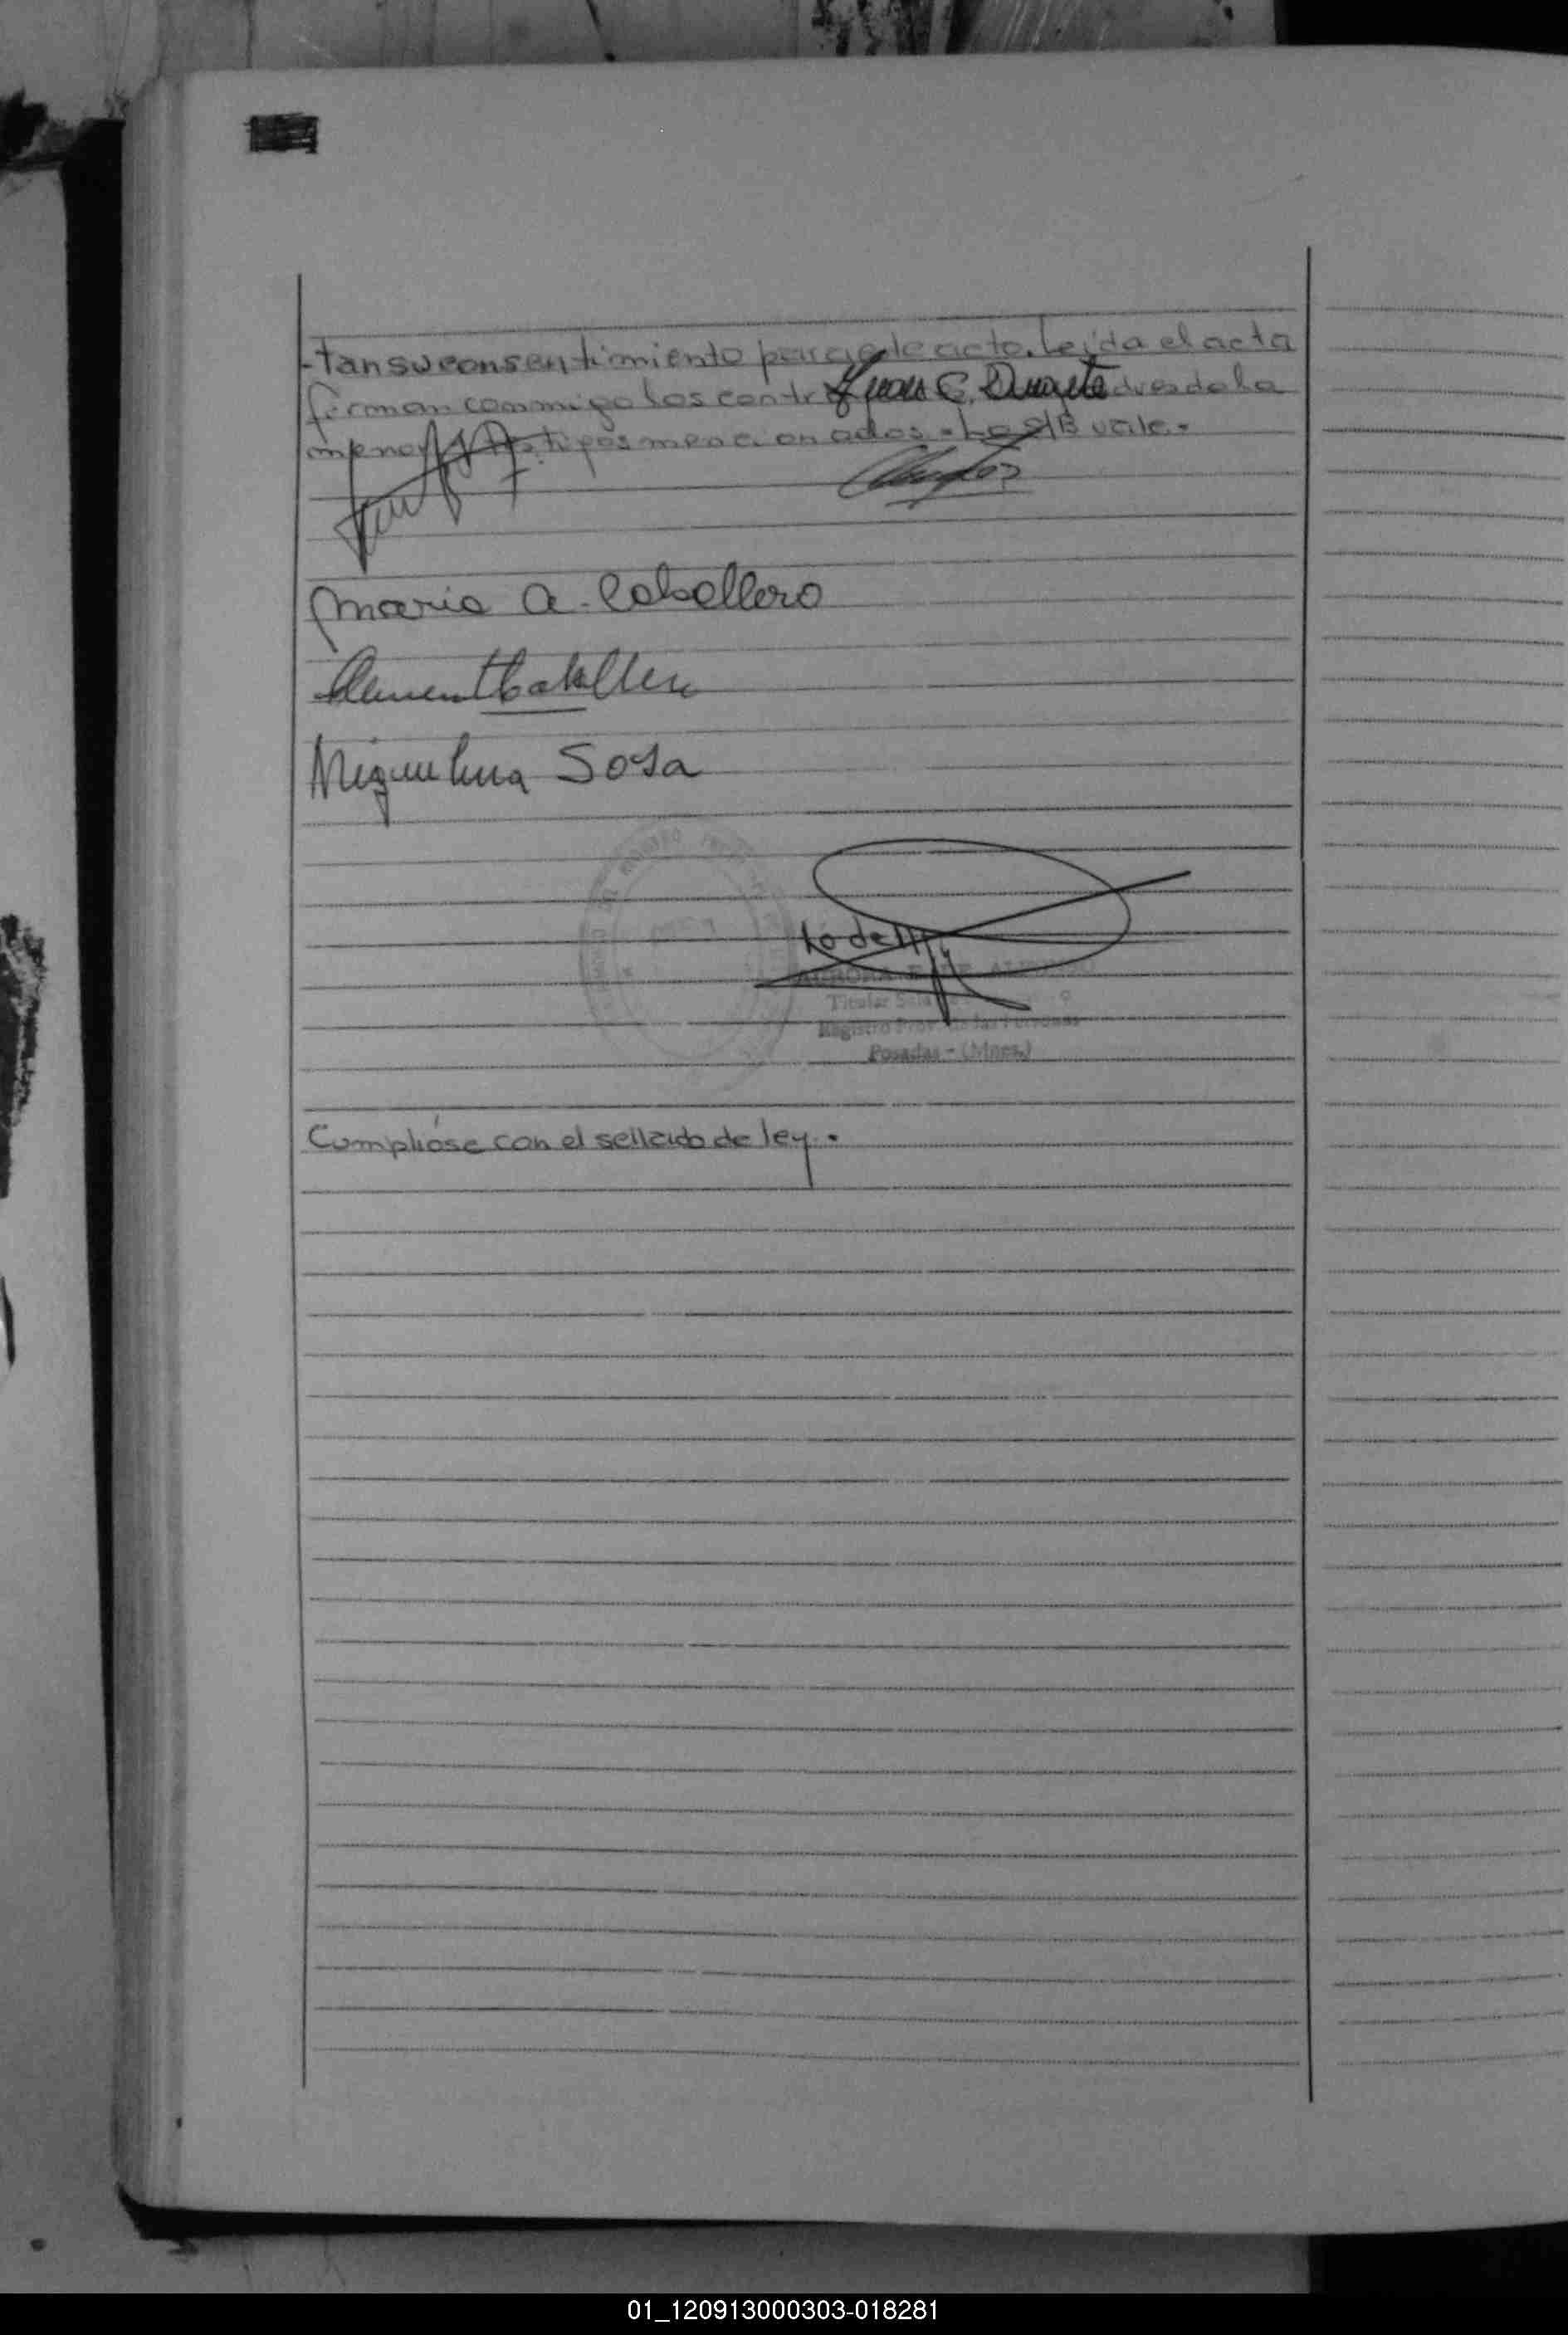 -tan su consentimiento para este acto. Leída el acta
firman conmigo los contr Juan C. Duarte dres de la
menor testigos mencionados.- Lo S/B vale.-
Maria A. Caballero
Clement Caballero
Miguelina Sosa
AURORA E. DE
Titular
Registro Prov. de las Personas
Posadas - (Mnes.)
Cumplióse con el sellado de ley.-
01_120913000303-018281